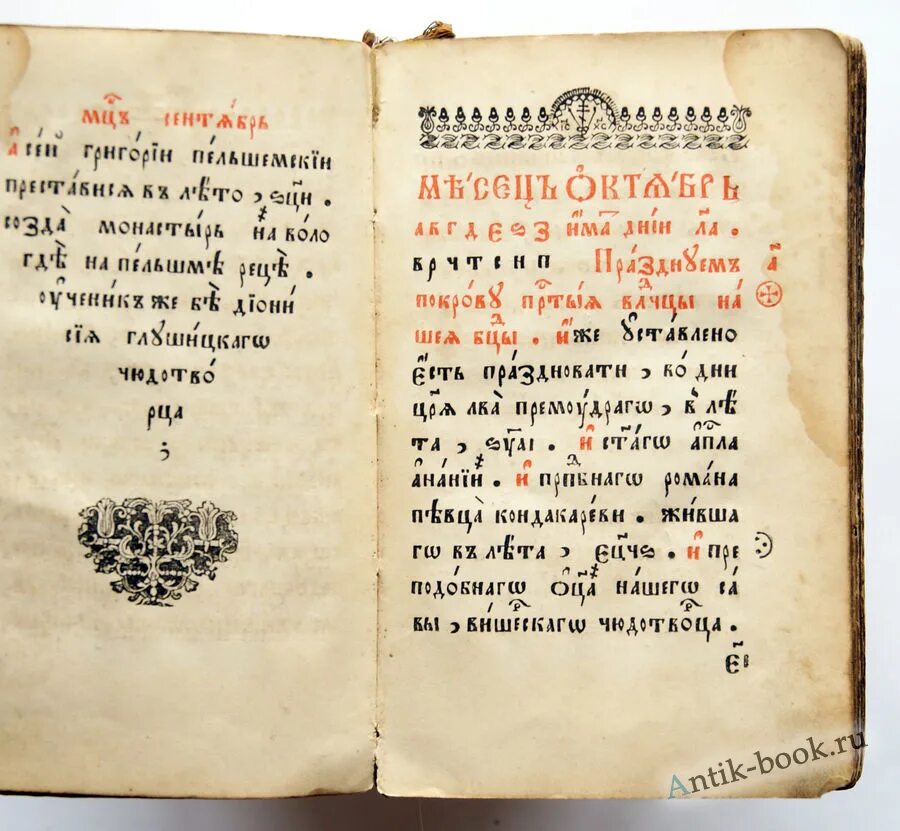 мцъ сентѧ́брь
а҃ сей григо́рїи пе́льшемскїи
преста́висѧ въ лѣ́то ҂ѕцн .
созда̀ монасты́рь на во́ло
гдѣ̀ на пе́льшмѣ рецѣ̀ .
оу҆чени́къ же бѣ̀ дїони́
сїѧ глꙋши́цкагѡ
чюдотво́
рца
;
мѣ́сецъ ѻ҆ктѧ́брь
а в г д є ѕ з и҆́мат дні́й л҃а .
в р ч т с н п Пра́зднꙋемъ а҃
покро́вꙋ прⷭ҇ты́ѧ влⷣчцы на́
шеѧ бцⷣы . и҆́же ᲂу҆ста́влено
є҆́сть пра́здновати , во дни
цр҃ѧ лва̀ премоу́драгѡ , в лѣ́
та , ѕуаі . и҆ ст҃а́гѡ а҆п҃ла
а҆на́нїи . и҆ прпⷣбнагѡ рома́на
пѣвца̀ кондакаре́ви . жи́вша
гѡ въ лѣ́та , єцчѕ . и҆ пре
подо́бнагѡ ѻ҆ц҃а̀ на́шегѡ са́
вы , ви́шескагѡ чюдотво́рца .
є҆в
Antik-book.ru